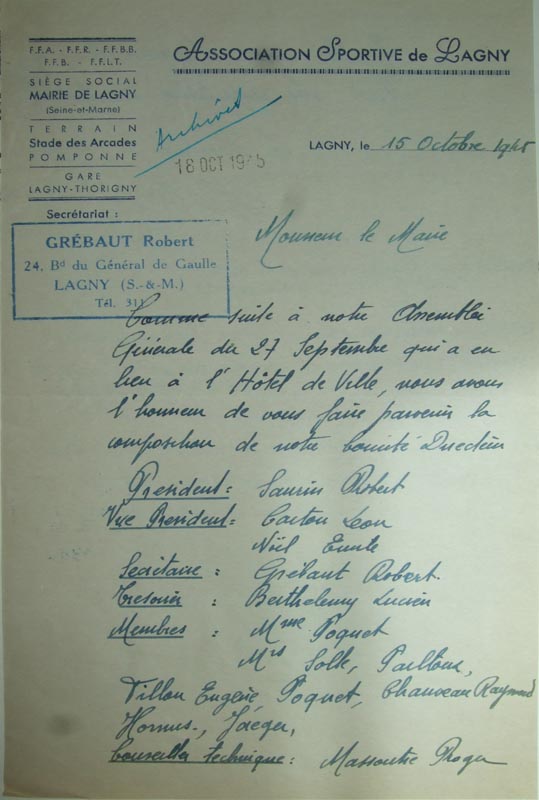 F.F.A. - F.F.R. - F.F.BB.
F.F.B. - F.F.L.T.
SIÈGE SOCIAL
MAIRIE DE LAGNY
(Seine-et-Marne)
TERRAIN
Stade des Arcades
POMPONNE
GARE
LAGNY-THORIGNY
Secrétariat :
GRÉBAUT Robert
24, Bd du Général de Gaulle
LAGNY (S.-&-M.)
Tél. 311
ASSOCIATION SPORTIVE de LAGNY
Archives
18 OCT 1945
LAGNY, le 15 Octobre 1945
Monsieur le Maire
Comme suite à notre Assemblée
Générale du 27 Septembre qui a eu
lieu à l'Hôtel de Ville, nous avons
l'honneur de vous faire parvenir la
composition de notre Comité Directeur
President : Saurin Robert
Vice President : Carton Leon
Noël Emile
Secrétaire : Grébaut Robert.
Tresorier : Berthelemy Lucien
Membres : Mme Poquet
Mrs Solle, Paillous,
Villou Eugène, Poquet, Chauveau Raymond
Hornus., Jaéger,
Conseiller technique : Massoutie Roger